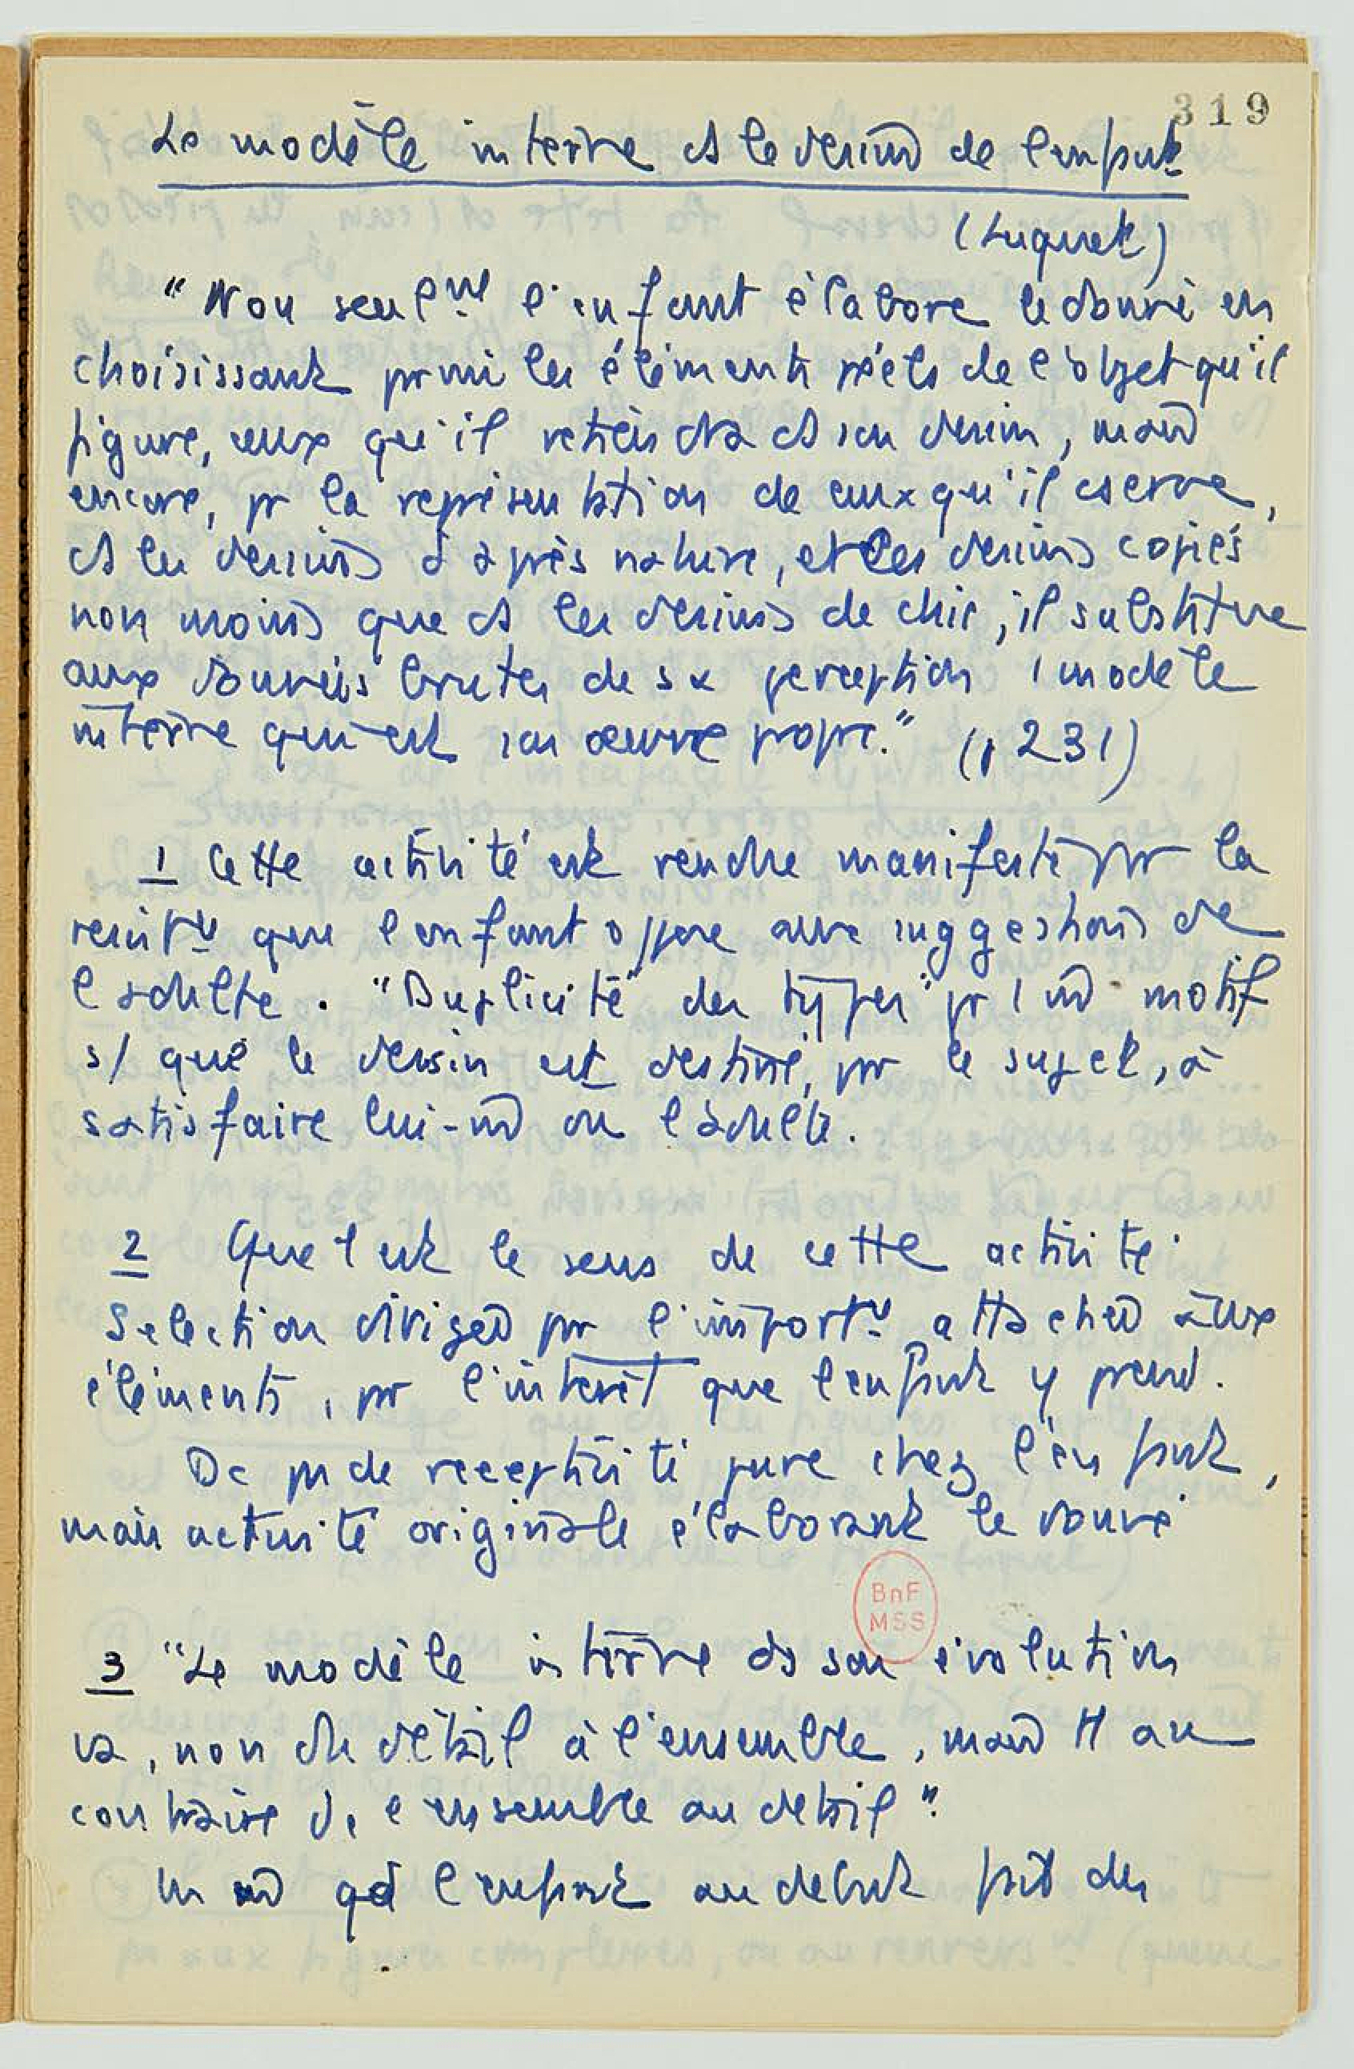 319
Le modèle interne ds le dessin de l'enfant
(Luquet)
"Non seulmt l'enfant élabore le donné en
choisissant parmi les éléments réels de l'objet qu'il
figure, ceux qu'il retiendra ds son dessin, mais
encore, pr la représentation de ceux qu'il cserve,
ds les dessins d'après nature, et les dessins copiés
non moins que ds les dessins de chic, il substitue
aux données brutes de sa perception 1 modèle
interne qui est son œuvre propre." (p 231)
1 Cette activité est rendue manifeste par la
que l'enfant oppose aux suggestions de
l'adulte. "Duplicité des types" pr 1 m̄ motif
s/ que le dessin est destiné, par le sujet, à
satisfaire lui-m̄ ou l'adulte.
2 Quel est le sens de cette activité
Selection dirigée par l'importce attachée aux
éléments, par l'intérêt que l'enfant y prend.
Dc pas de receptivité pure chez l'enfant,
mais activité originale élaborant le donné
BnF
MSS
3 "Le modèle interne ds son évolution
va, non du détail à l'ensemble, mais tt au
contraire de l'ensemble au détail".
l'enfant au debut fait des